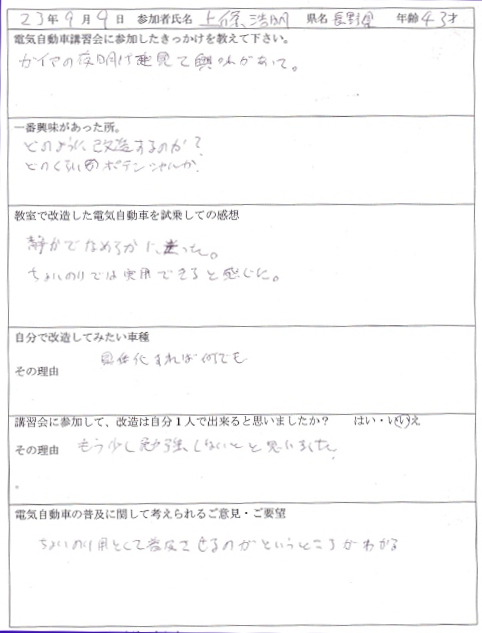 23年9月9日 参加者氏名 上條 浩明 県名 長野県 年齢43才
電気自動車講習会に参加したきっかけを教えて下さい。
ガイアの夜明けを見て興味があって。
一番興味があった所。
どのように改造するのか?
どのくらいのポテンシャルか。
教室で改造した電気自動車を試乗しての感想
静かでなめらかに走った。
ちょいのりでは実用できると感じた。
自分で改造してみたい車種
すれば何でも
その理由
講習会に参加して、改造は自分1人で出来ると思いましたか? はい・いいえ
その理由 もう少し勉強しないとと思いました
電気自動車の普及に関して考えられるご意見・ご要望
ちょいのり用として普及させるのがというところがわかる